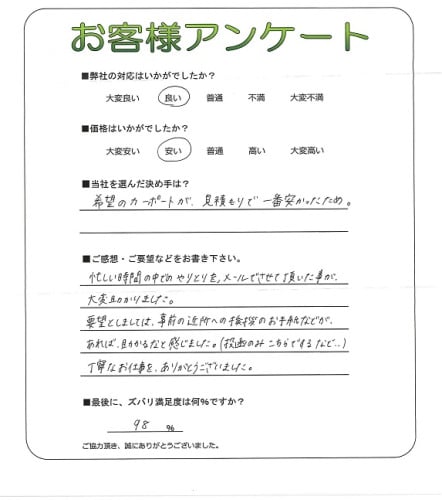 お客様アンケート
■弊社の対応はいかがでしたか?
大変良い 良い 普通 不満 大変不満
■価格はいかがでしたか?
大変安い 安い 普通 高い 大変高い
■当社を選んだ決め手は?
希望のカーポートが、見積もりで一番安かったため。
■ご感想・ご要望などをお書き下さい。
忙しい時間の中でのやりとりを、メールでさせて頂いた事が、
大変助かりました。
要望としましては、事前の近所への挨拶のお手紙などが、
あれば、助かるなと感じました。(投函のみこちらでするなど…)
丁寧なお仕事を、ありがとうございました。
■最後に、ズバリ満足度は何%ですか?
98 %
ご協力頂き、誠にありがとうございました。